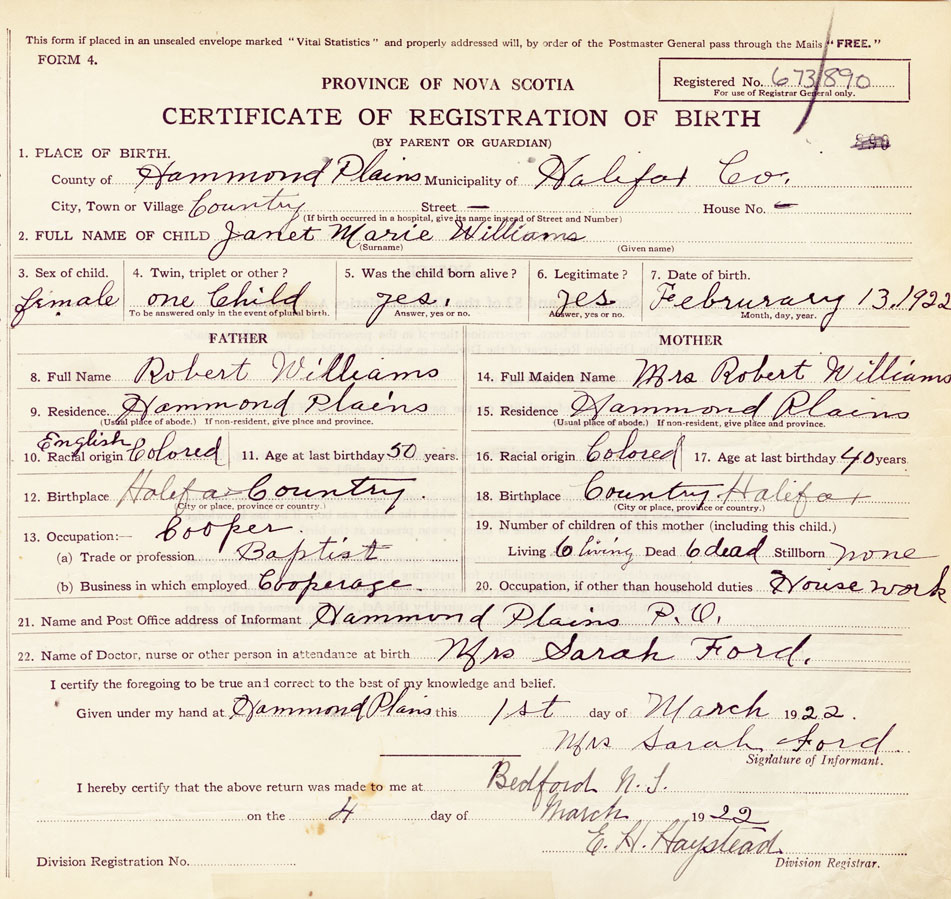 This form if placed in an unsealed envelope marked "Vital Statistics" and properly addressed will, by order of the Postmaster General pass through the Mails "FREE."
FORM 4.
PROVINCE OF NOVA SCOTIA
Registered No. 673890
For use of Registrar General only.
CERTIFICATE OF REGISTRATION OF BIRTH
(BY PARENT OR GUARDIAN)
890
1. PLACE OF BIRTH.
County of Hammond Plains Municipality of Halifax Co.
City, Town or Village Country Street — House No. —
(If birth occurred in a hospital, give its name instead of Street and Number)
2. FULL NAME OF CHILD Janet Marie Williams
(Surname) (Given name)
3. Sex of child. 4. Twin, triplet or other? 5. Was the child born alive? 6. Legitimate? 7. Date of birth.
female one Child yes. yes Februrary 13, 1922
To be answered only in the event of plural birth. Answer, yes or no. Answer, yes or no. Month, day, year.
FATHER MOTHER
8. Full Name Robert Williams 14. Full Maiden Name Mrs Robert Williams
9. Residence. Hammond Plains 15. Residence Hammond Plains
(Usual place of abode.) If non-resident, give place and province. (Usual place of abode.) If non-resident, give place and province.
English
10. Racial origin Colored 11. Age at last birthday 50 years. 16. Racial origin Colored 17. Age at last birthday 40 years.
12. Birthplace Halifax Country. 18. Birthplace Country Halifax
(City or place, province or country.) (City or place, province or country.)
13. Occupation:— Cooper 19. Number of children of this mother (including this child.)
(a) Trade or profession Baptist Living 6 living Dead 6 dead Stillborn none
(b) Business in which employed Cooperage 20. Occupation, if other than household duties House work
21. Name and Post Office address of Informant Hammond Plains P.O.
22. Name of Doctor, nurse or other person in attendance at birth Mrs Sarah Ford.
I certify the foregoing to be true and correct to the best of my knowledge and belief.
Given under my hand at Hammond Plains this 1st day of March 1922.
Mrs Sarah Ford.
Signature of Informant.
I hereby certify that the above return was made to me at Bedford N.S.
on the 4 day of March 1922
E. H. Haystead
Division Registration No. Division Registrar.